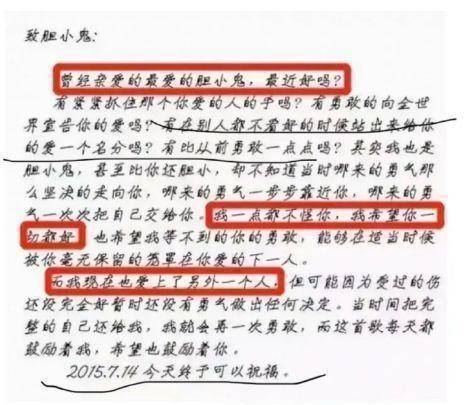 致胆小鬼:
曾经亲爱的最爱的胆小鬼，最近好吗?
有紧紧抓住那个你爱的人的手吗? 有勇敢的向全世
界宣告你的爱吗? 有在别人都不看好的时候站出来给你
的爱一个名分吗? 有比从前勇敢一点点吗? 其实我也是
胆小鬼，甚至比你还胆小，却不知道当时哪来的勇气那
么坚决的走向你，哪来的勇气一步步靠近你，哪来的勇
气一次次把自己交给你。我一点都不怪你，我希望你一
切都好，也希望我等不到的你的勇敢，能够在适当时候
被你毫无保留的笼罩在你爱的下一人。
而我现在也爱上了另外一个人，但可能因为受过的伤
还没完全好暂时还没有勇气做出任何决定。当时间把完
整的自己还给我，我就会再一次勇敢，而这首歌每天都
鼓励着我，希望也鼓励着你。
2015.7.14 今天终于可以祝福。